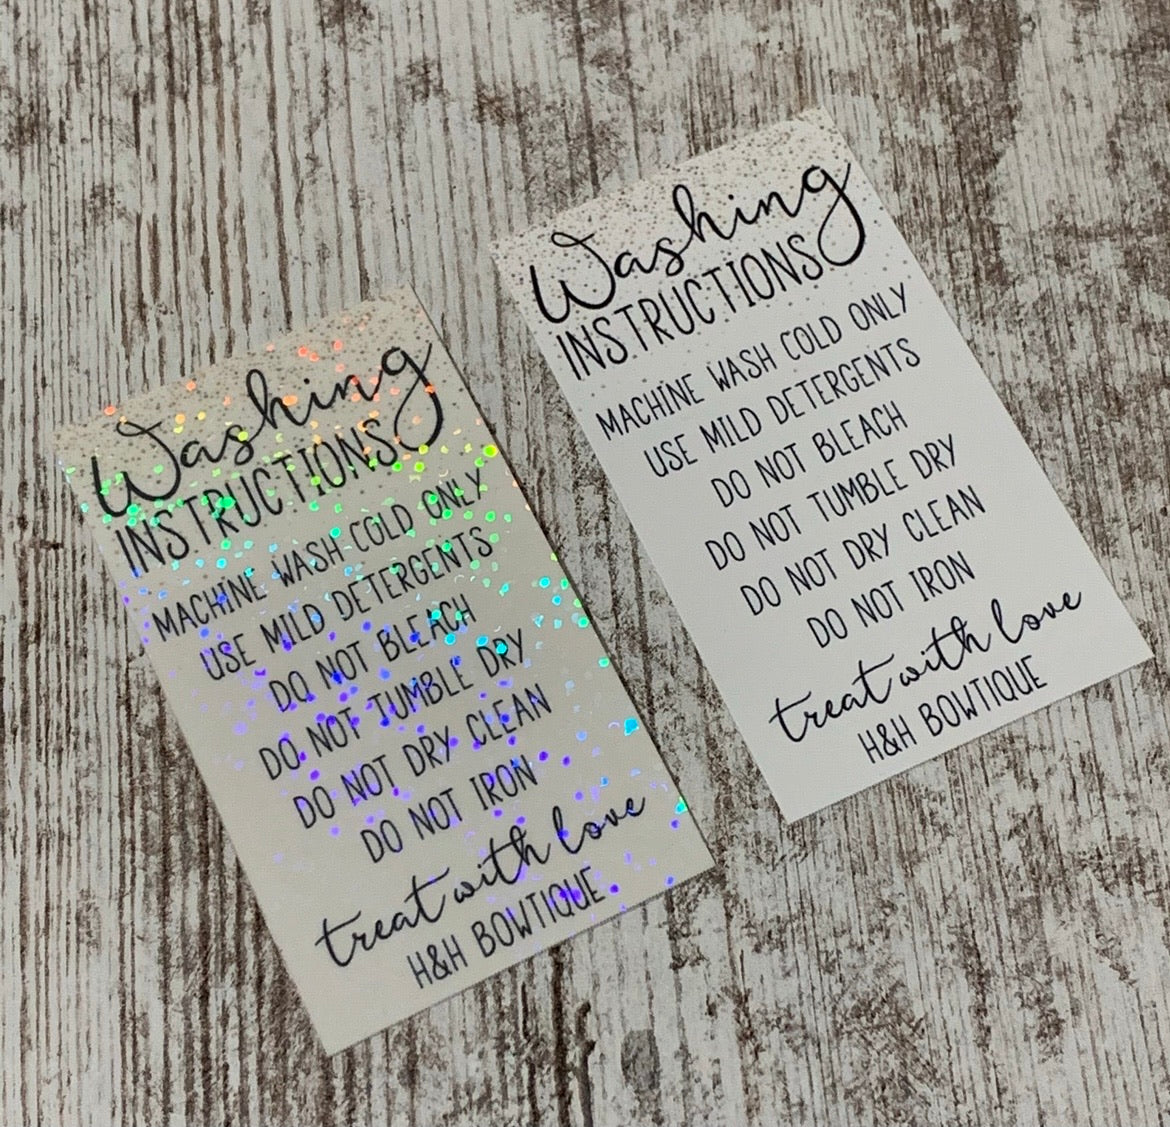 Washing
INSTRUCTIONS
MACHINE WASH COLD ONLY
USE MILD DETERGENTS
DO NOT BLEACH
DO NOT TUMBLE DRY
DO NOT DRY CLEAN
DO NOT IRON
treat with love
H&H BOWTIQUE
Washing
INSTRUCTIONS
MACHINE WASH COLD ONLY
USE MILD DETERGENTS
DO NOT BLEACH
DO NOT TUMBLE DRY
DO NOT DRY CLEAN
DO NOT IRON
treat with love
H&H BOWTIQUE